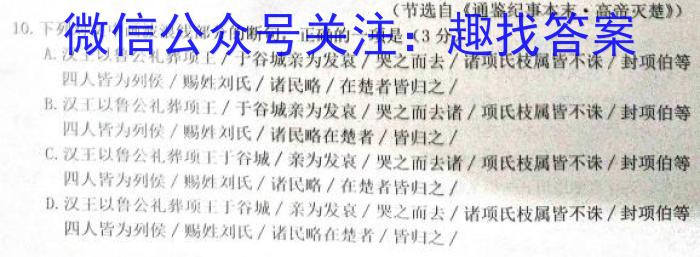 (节选自《通鉴纪事本末·高帝灭楚》)
10.下列
正确的一项是(3分
微信公众号关注:趣找答案
A.汉王以鲁公礼葬项王/于谷城亲为发哀/哭之而去/诸项氏枝属皆不诛/封项伯等
四人皆为列侯/赐姓刘氏/诸民略/在楚者皆归之/
B.汉王以鲁公礼葬项王/于谷城亲为发哀/哭之而去诸/项氏枝属皆不诛/封项伯等
四人皆为列侯/赐姓刘氏/诸民略在楚者/皆归之/
C.汉王以鲁公礼葬项王于谷城/亲为发哀/哭之而去诸/项氏枝属皆不诛/封项伯等
四人皆为列侯/赐姓刘氏/诸民略/在楚者皆归之/
D.汉王以鲁公礼葬项王于谷城/亲为发哀/哭之而去/诸项氏枝属皆不诛/封项伯等
四人皆为列侯/赐姓刘氏/诸民略在楚者/皆归之/